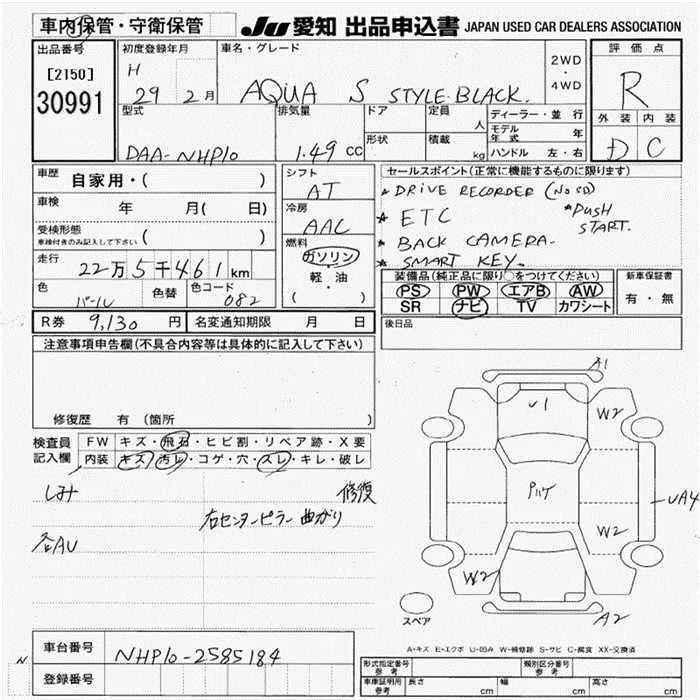 車内保管・守衛保管
JU 愛知 出品申込書 JAPAN USED CAR DEALERS ASSOCIATION
出品番号
[2150]
30991
初度登録年月
H 29 2月
車名・グレード
AQUA S STYLE BLACK.
2WD
・
4WD
評価点
R
外装 内装
D C
型式
DAA-NHP10
排気量
1.49 CC
ドア
形状
定員 人
積載 kg
ディーラー・並行
モデル年式 年
ハンドル 左・右
車歴 自家用・( )
車検 年 月( 日)
受検形態
車検付きのみ記入して下さい ( )
走行 22万5千461km
色 パール 色替 色コード 082
シフト
AT
冷房
AAC
燃料
ガソリン
・
軽・油
( )
セールスポイント(正常に機能するものに限ります)
★ DRIVE RECORDER (No SD)
★ ETC
★PUSH START.
★ BACK CAMERA.
★ SMART KEY.
装備品(純正品に限り○をつけてください)
PS PW エアB AW
SR ナビ TV カワシート
新車保証書
有・無
R券 9,130 円 名変通知期限 月 日
後日品
注意事項申告欄(不具合内容等は具体的に記入して下さい)
修復歴 有 (箇所 )
検査員記入欄
FW キズ・飛石・ヒビ割・リペア跡・X要
内装 キズ・汚レ・コゲ・穴・スレ・キレ・破レ
しみ 修復
右センターピラー曲がり
各AU
A1
U1
W2
UA4
W2
W2
A2
スペア
A-キズ E-エクボ U-凹み W-補修跡 S-サビ C-腐食 XX-交換済
車台番号 NHP10-2585184
N
登録番号
形式指定番号
参考
類別区分番号
参考
車庫証明用
参考
長さ cm
幅 cm
高さ cm